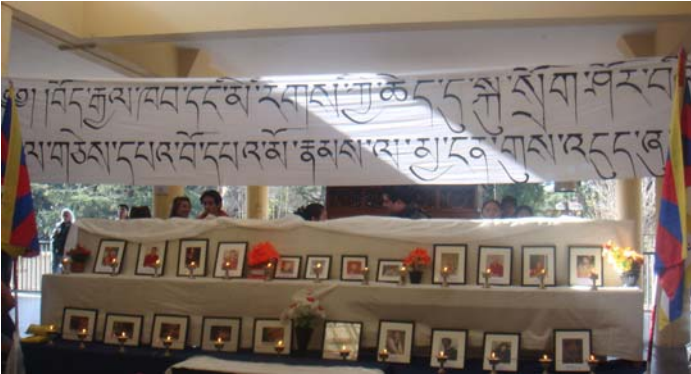 ༄༅། །བོད་རྒྱལ་ཁབ་དང་མི་རིགས་ཀྱི་ཆེད་དུ་སྐུ་སྲོག་ཤོར་བ
ལ་གཅེས་དཔའ་བོ་དཔའ་མོ་རྣམས་ལ་ མྱ་ངན་གུས་འདུད་ཞུ